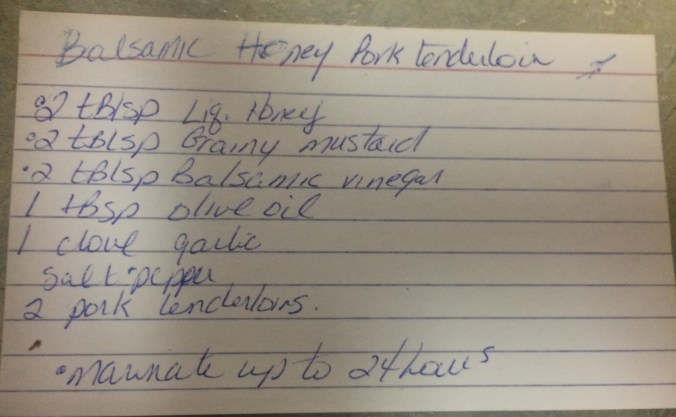 Balsamic Honey Pork tenderloin
•2 tBlsp Liq. Honey
•2 tBlsp Grainy mustard
•2 tBlsp Balsamic vinegar
1 tbsp olive oil
1 clove garlic
salt • pepper
2 pork tenderloins.
• marinate up to 24 hours